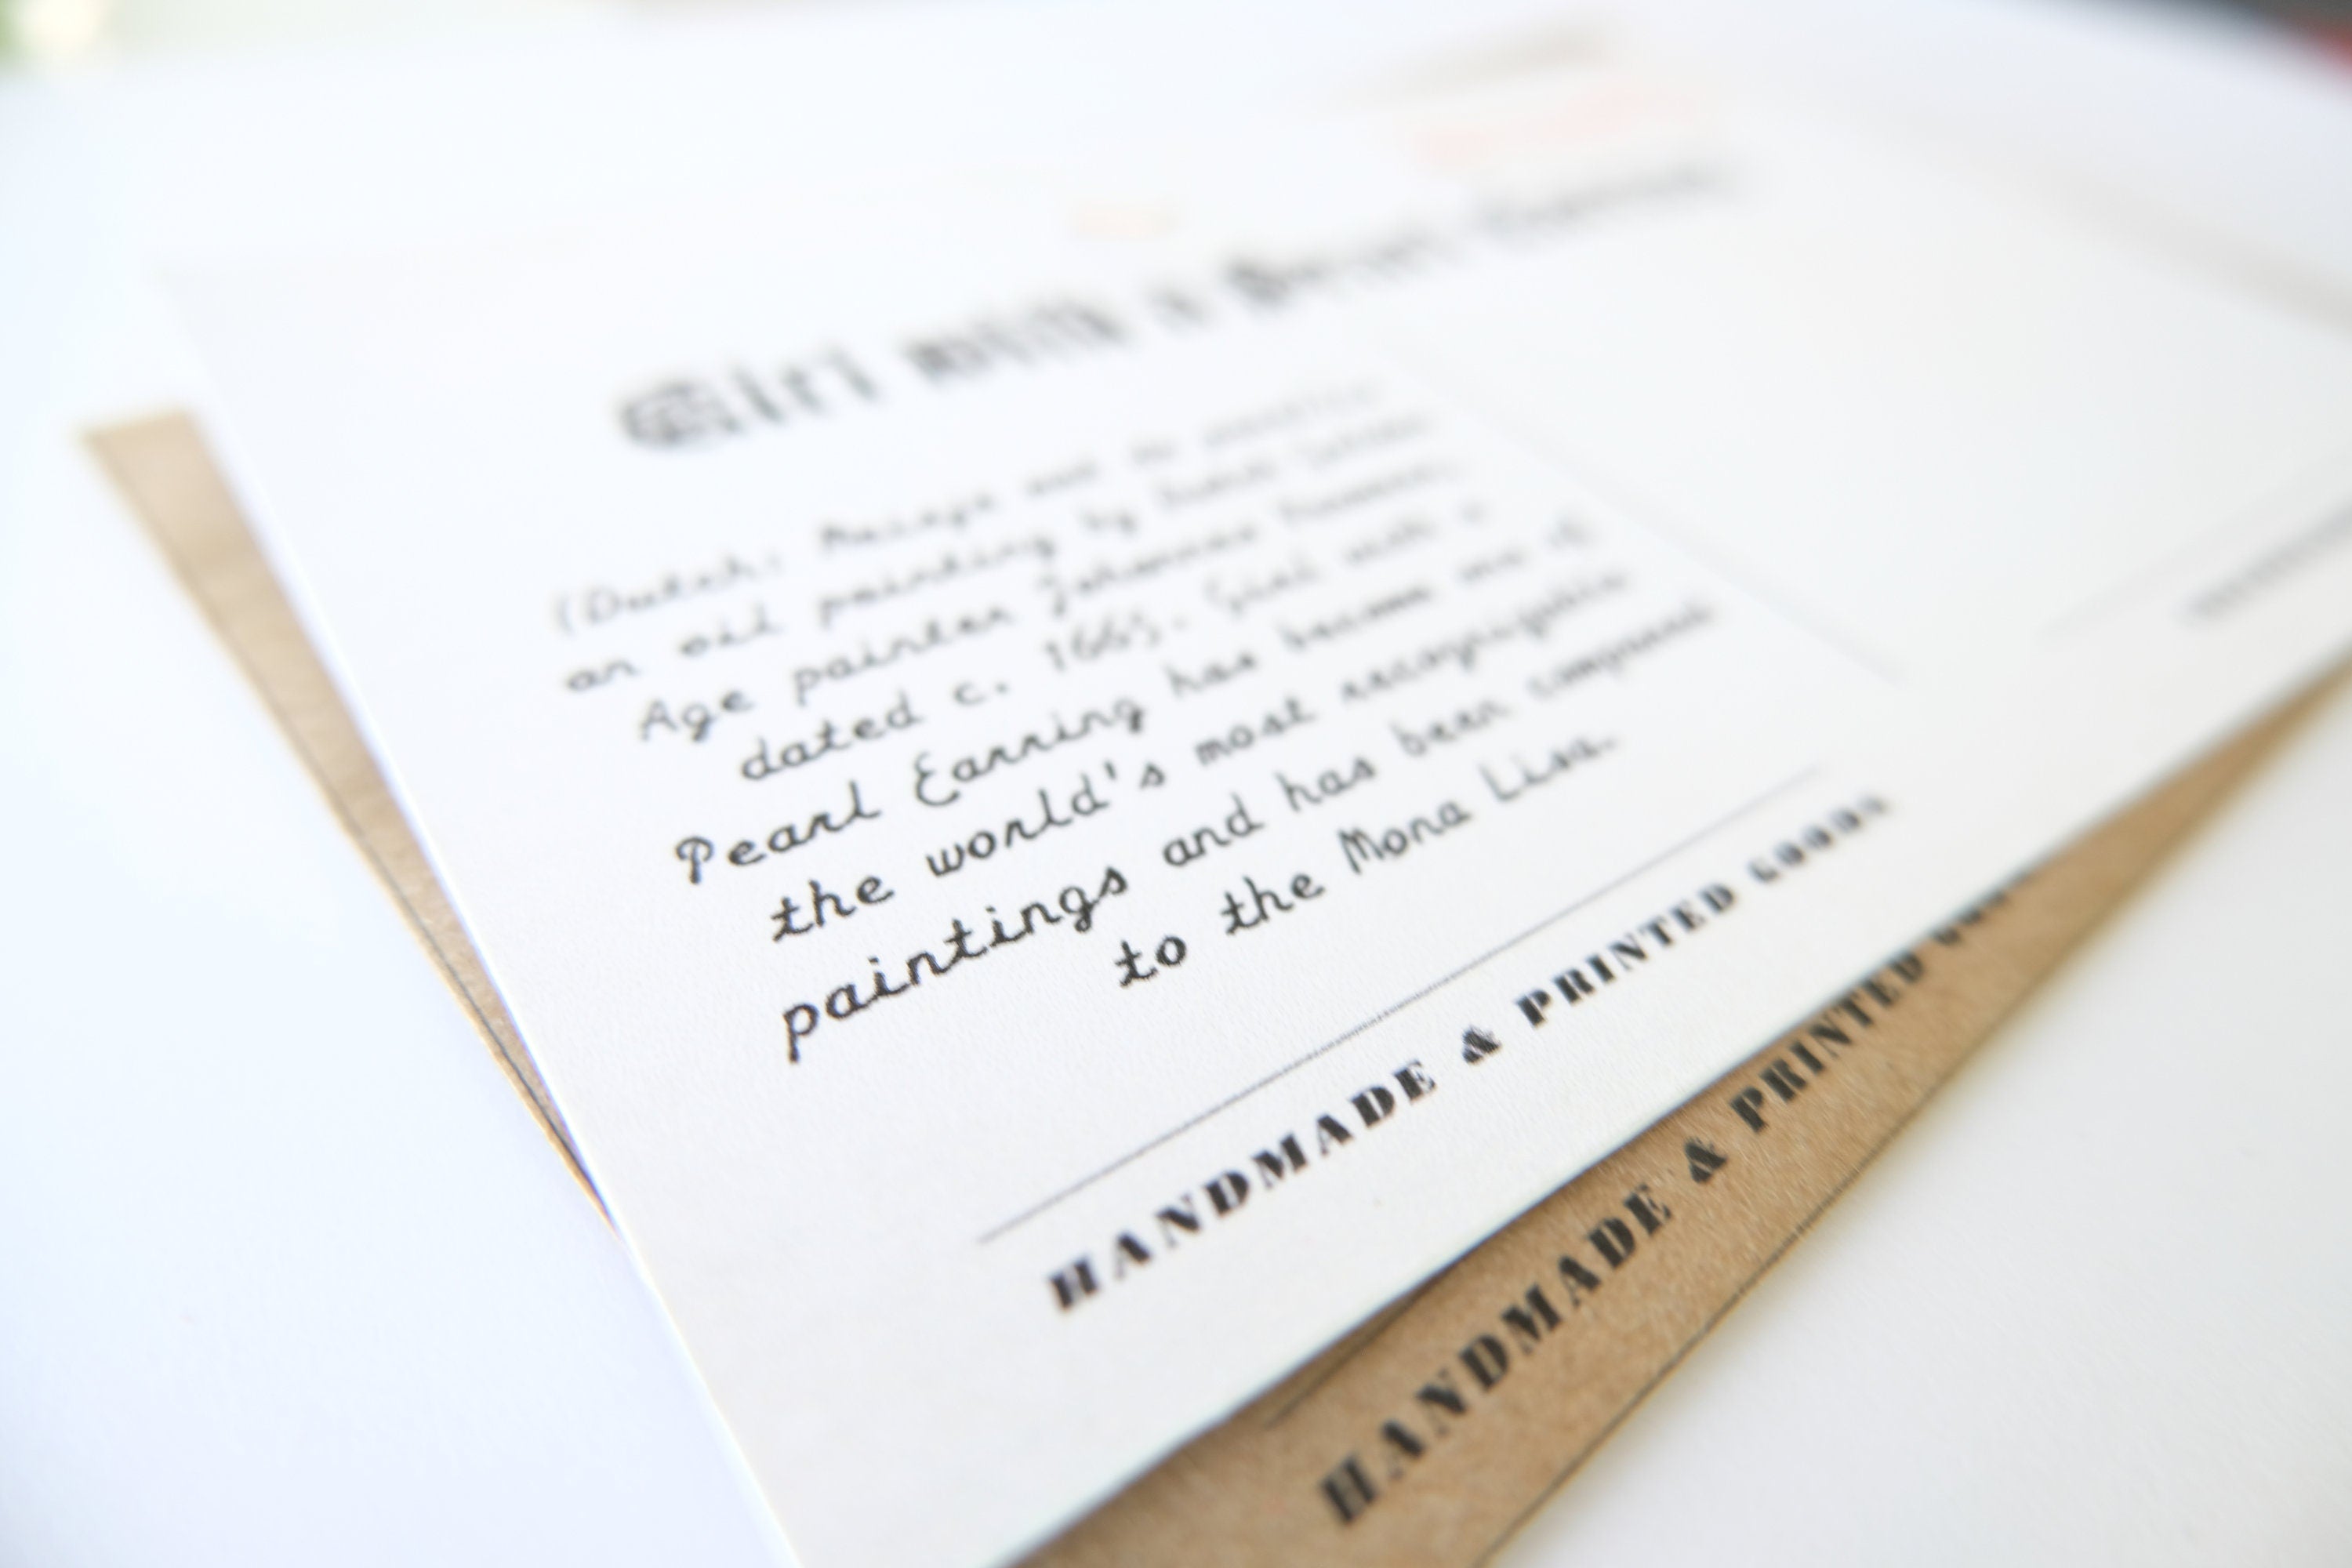 Girl with a Pearl Earring
(Dutch: Meisje met de parel) is
an oil painting by Dutch Golden
Age painter Johannes Vermeer,
dated c. 1665. Girl with a
Pearl Earring has become one of
the world's most recognizable
paintings and has been compared
to the Mona Lisa.
HANDMADE & PRINTED GOODS
HANDMADE & PRINTED